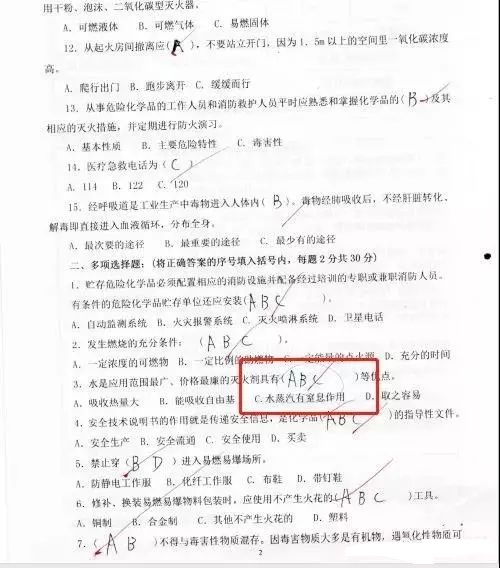 用干粉、泡沫、二氧化碳型灭火器。
A. 可燃液体 B. 可燃气体 C. 易燃固体
12. 从起火房间撤离应( A ),不要站立开门,因为 1. 5m 以上的空间里一氧化碳浓度
高。
A. 爬行出门 B. 跑步离开 C. 缓缓而行
13. 从事危险化学品的工作人员和消防救护人员平时应熟悉和掌握化学品的( B )及其
相应的灭火措施,并定期进行防火演习。
A. 基本性质 B. 主要危险特性 C. 毒害性
14. 医疗急救电话为( C )
A. 114 B. 122 C. 120
15. 经呼吸道是工业生产中毒物进入人体内( B )。毒物经肺吸收后,不经肝脏转化、
解毒即直接进入血液循环,分布全身。
A. 最次要的途径 B. 最重要的途径 C. 最少有的途径
二、多项选择题:(将正确答案的序号填入括号内,每题 2 分共 30 分)
1. 贮存危险化学品必须配置相应的消防设施并配备经过培训的专职或兼职消防人员。
有条件的危险化学品贮存单位还应安装( A B C )。
A. 自动监测系统 B. 火灾报警系统 C. 灭火喷淋系统 D. 卫星电话
2. 发生燃烧的充分条件: ( A B C )。
A. 一定浓度的可燃物 B. 一定比例的助燃物 C. 一定能量的点火源 D. 充分的时间
3. 水是应用范围最广、价格最廉的灭火剂具有( A B C )等优点。
A. 吸收热量大 B. 能吸收自由基 C.水蒸汽有窒息作用 D. 取之容易
4. 安全技术说明书的作用就是传递安全信息,是化学品( A B C )的指导性文件。
A. 安全生产 B. 安全流通 C. 安全使用 D. 买卖
5. 禁止穿( B D )进入易燃易爆场所。
A. 防静电工作服 B. 化纤工作服 C. 布鞋 D. 带钉鞋
6. 修补、换装易燃易爆物料包装时,应使用不产生火花的( A B C )工具。
A. 铜制 B. 合金制 C. 其他不产生火花的 D. 塑料
7. ( A B )不得与毒害性物质混存。因毒害物质大多是有机物,遇氧化性物质可
2